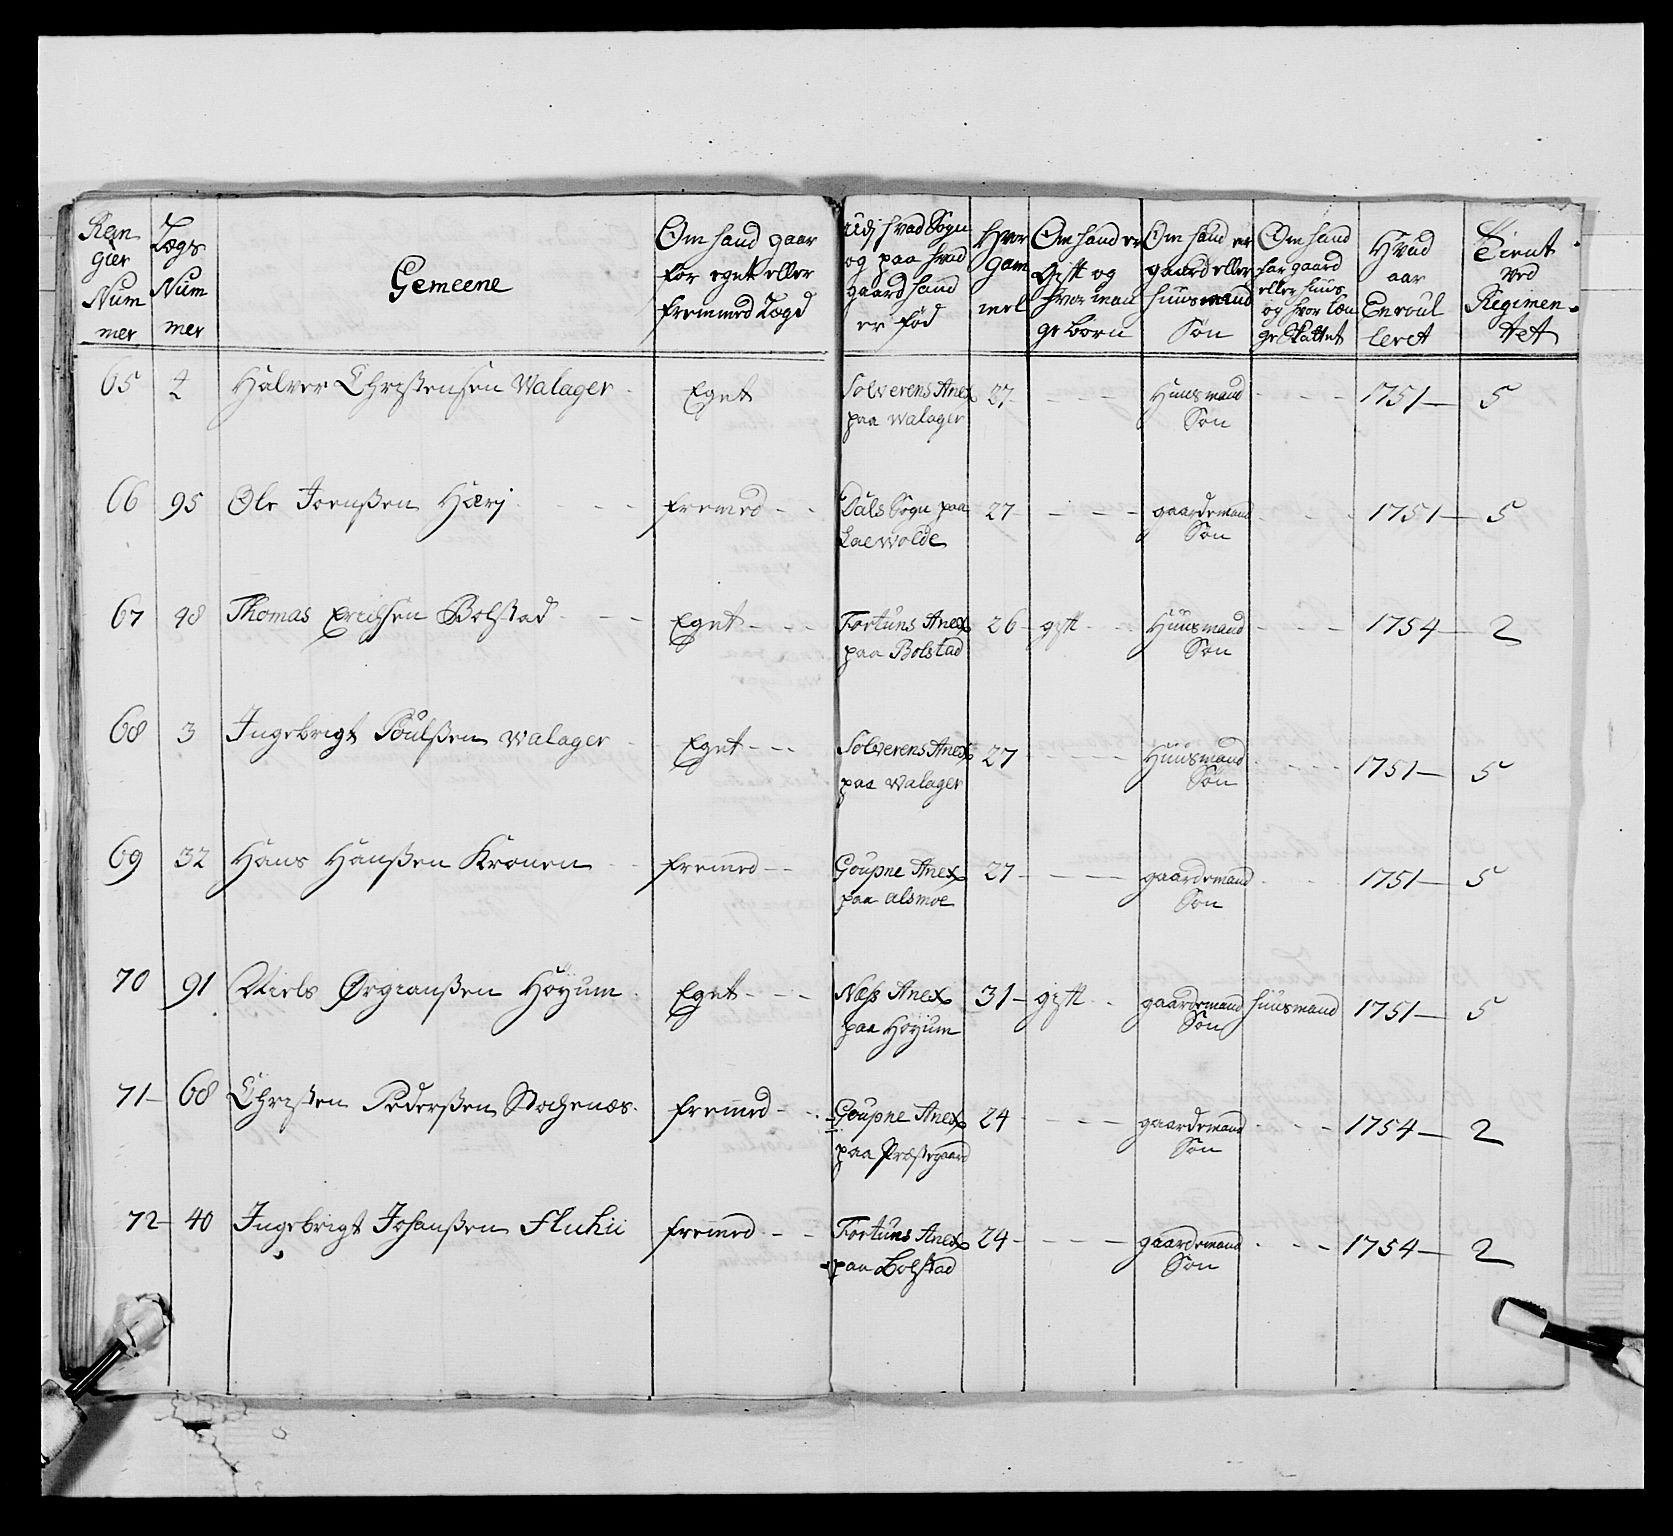 Ren gier Num mer | Lægs Num mer | Gemeene | Om hand gaar for eget eller fremmed Lægd | Udj hvad Sogn og paa hvad gaard hand er fød | Hvor gam mel | Om hand er Gift og hvor man ge born | Om hand er gaard eller huusmand Søn | Om hand har gaard eller huus og hvor læn ge Skattet | Hvad aar Enroul leret | Tient ved Regimen- tet
65 | 2 | Halver Christensen Walager | Eget | Solverens Anex paa Walager | 27 | Huusmand Søn | 1751 | 5
66 | 95 | Ole Joenßen Hærj | fremed | Dals Sogn paa | 27 | gaardemand Søn | 1751 | 5
67 | 48 | Thomas Erichsen Bolstad | Eget | Fortuns Anex paa Bolstad | 26 | gift | Huusmand Søn | 1754 | 2
68 | 3 | Ingebrigt Poulßen Walager | Eget | Solverens Anex paa Walager | 27 | Huusmand Søn | 1751 | 5
69 | 32 | Hans Hanßen Kronen | fremed | Goupne Anex paa Alsmoe | 27 | gaardemand Søn | 1751 | 5
70 | 91 | Niels Ørgianßen Høyum | Eget | Næss Anex paa Høyum | 31 | gift | gaardemand Søn | huusmand | 1751 | 5
71 | 68 | Christen Pederßen | fremed | Goupne Anex paa Præstegaard | 24 | gaardemand Søn | 1754 | 2
72 | 40 | Ingebrigt Johanßen | fremed | Fortuns Anex paa Bolstad | 24 | gaardemand Søn | 1754 | 2